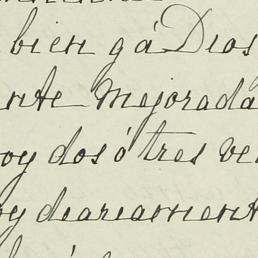 bien gá Dios
nte mejorada
oy dos ó tres ve
y diariament